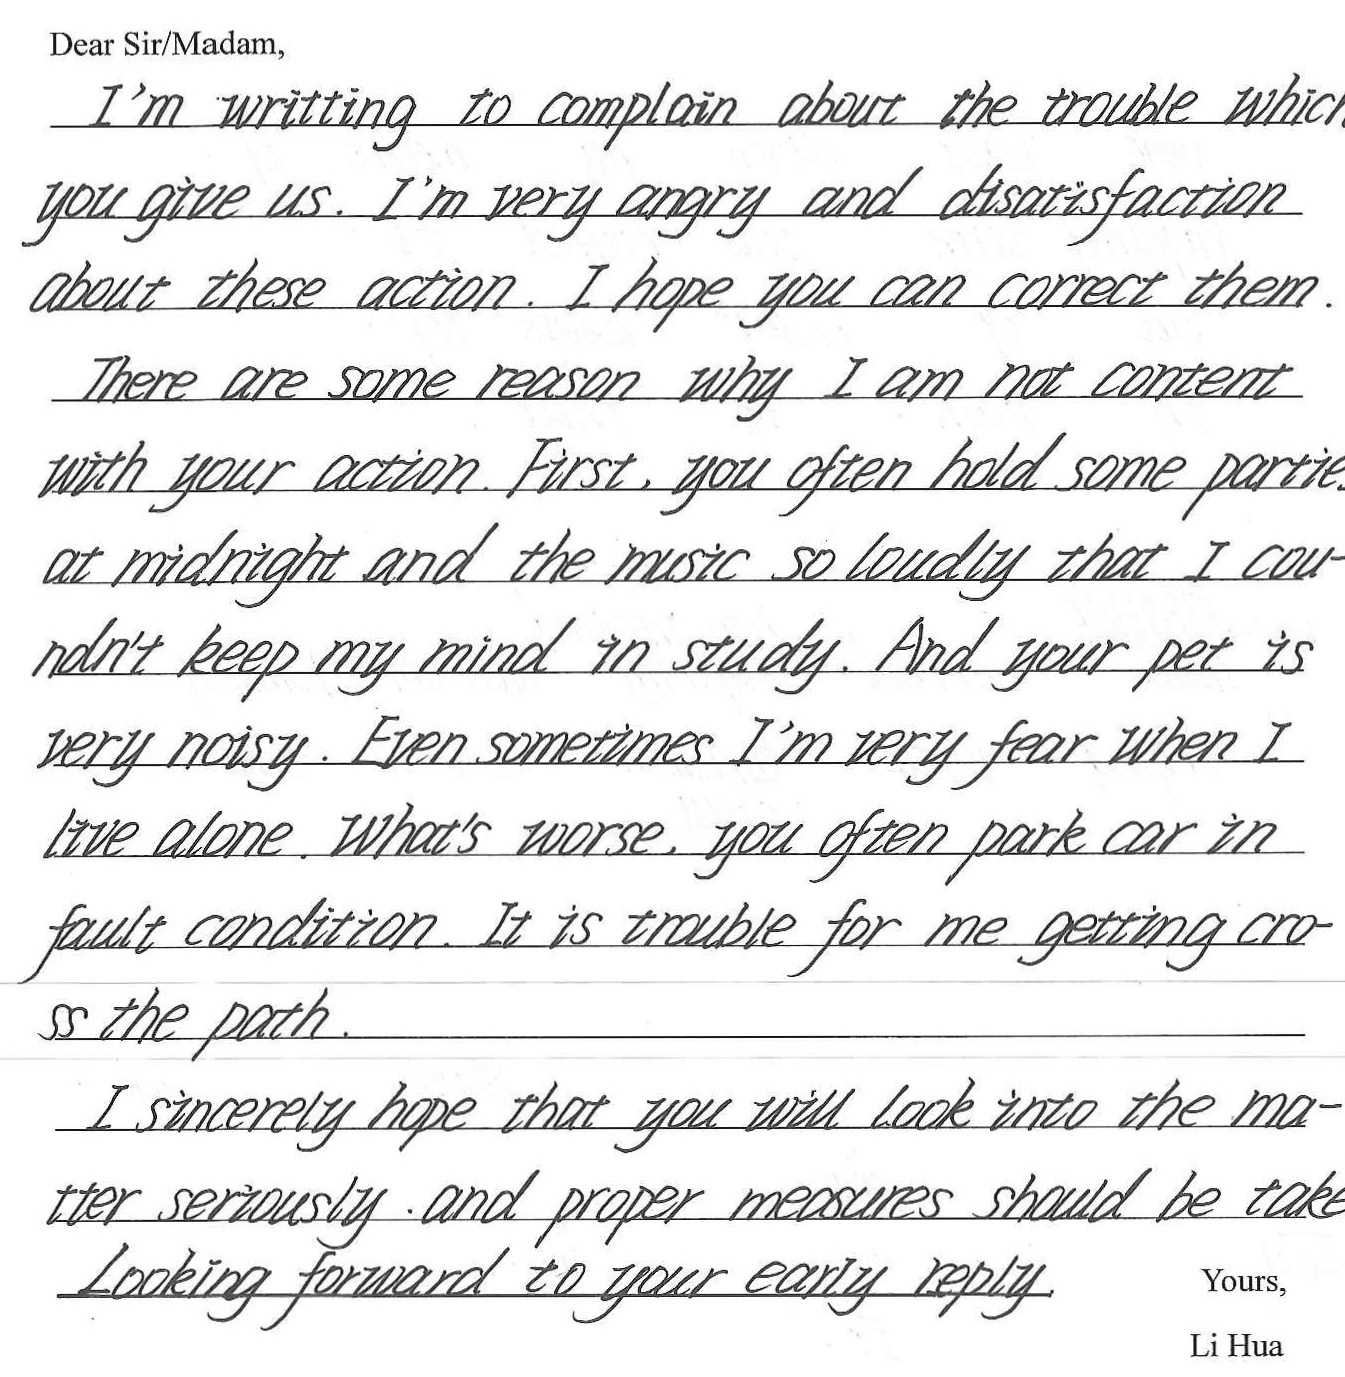 Dear Sir/Madam,
I'm writting to complain about the trouble which
you give us. I'm very angry and disatisfaction
about these action. I hope you can correct them.
There are some reason why I am not content
with your action. First, you often hold some parties
at midnight and the music so loudly that I cou-
ndn't keep my mind in study. And your pet is
very noisy. Even sometimes I'm very fear when I
live alone. What's worse, you often park car in
fault condition. It is trouble for me getting cro-
ss the path.
I sincerely hope that you will look into the ma-
tter seriously. and proper measures should be take
Looking forward to your early reply.
Yours,
Li Hua